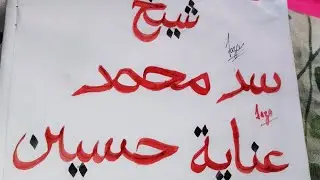 شيخ
سد محمد
عناية حسين